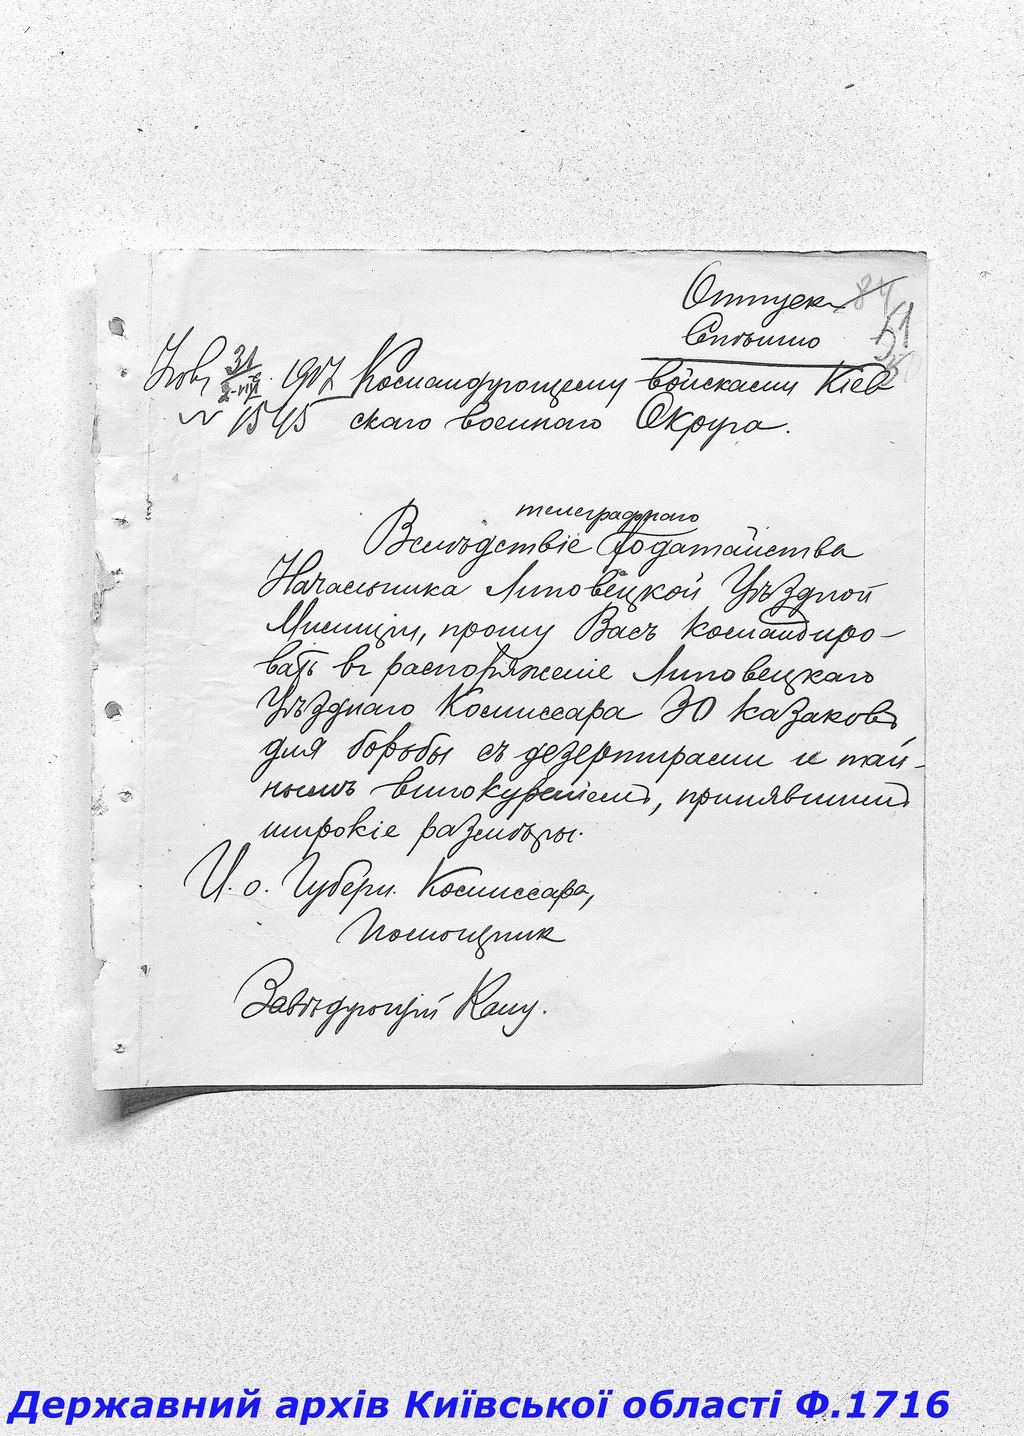 Отпускъ 84
Спѣшно 51
31 1917 Командующему войсками Кіев
2-VIII
№ 1545 скаго военнаго Округа.
телеграфнаго
Вслѣдствіе ходатайства
Начальника Липовецкой Уѣздной
Милиціи, прошу Васъ командиро-
вать въ распоряженіе Липовецкаго
Уѣзднаго Комиссара 30 казаковъ
для борьбы съ дезертирами и тай-
нымъ винокуреніемъ, принявшимъ
широкіе размѣры.
И. о. Губерн. Комиссара,
Помощник
Завѣдующій Канц.
Державний архів Київської області Ф.1716